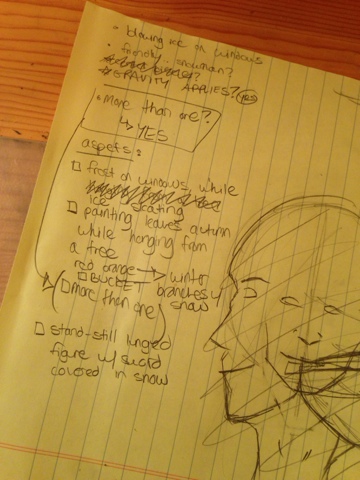 • blowing ice on windows
• friendly.. snowman?
GRAVITY APPLIES? YES
• more than one?
↳ YES
aspects:
□ frost on windows while
ice skating
□ painting leaves autumn
while hanging from
a tree
red orange → winter
□ BUCKET branches w/
snow
(□ more than one)
□ stand-still lunged
figure w/ sword
colored in snow